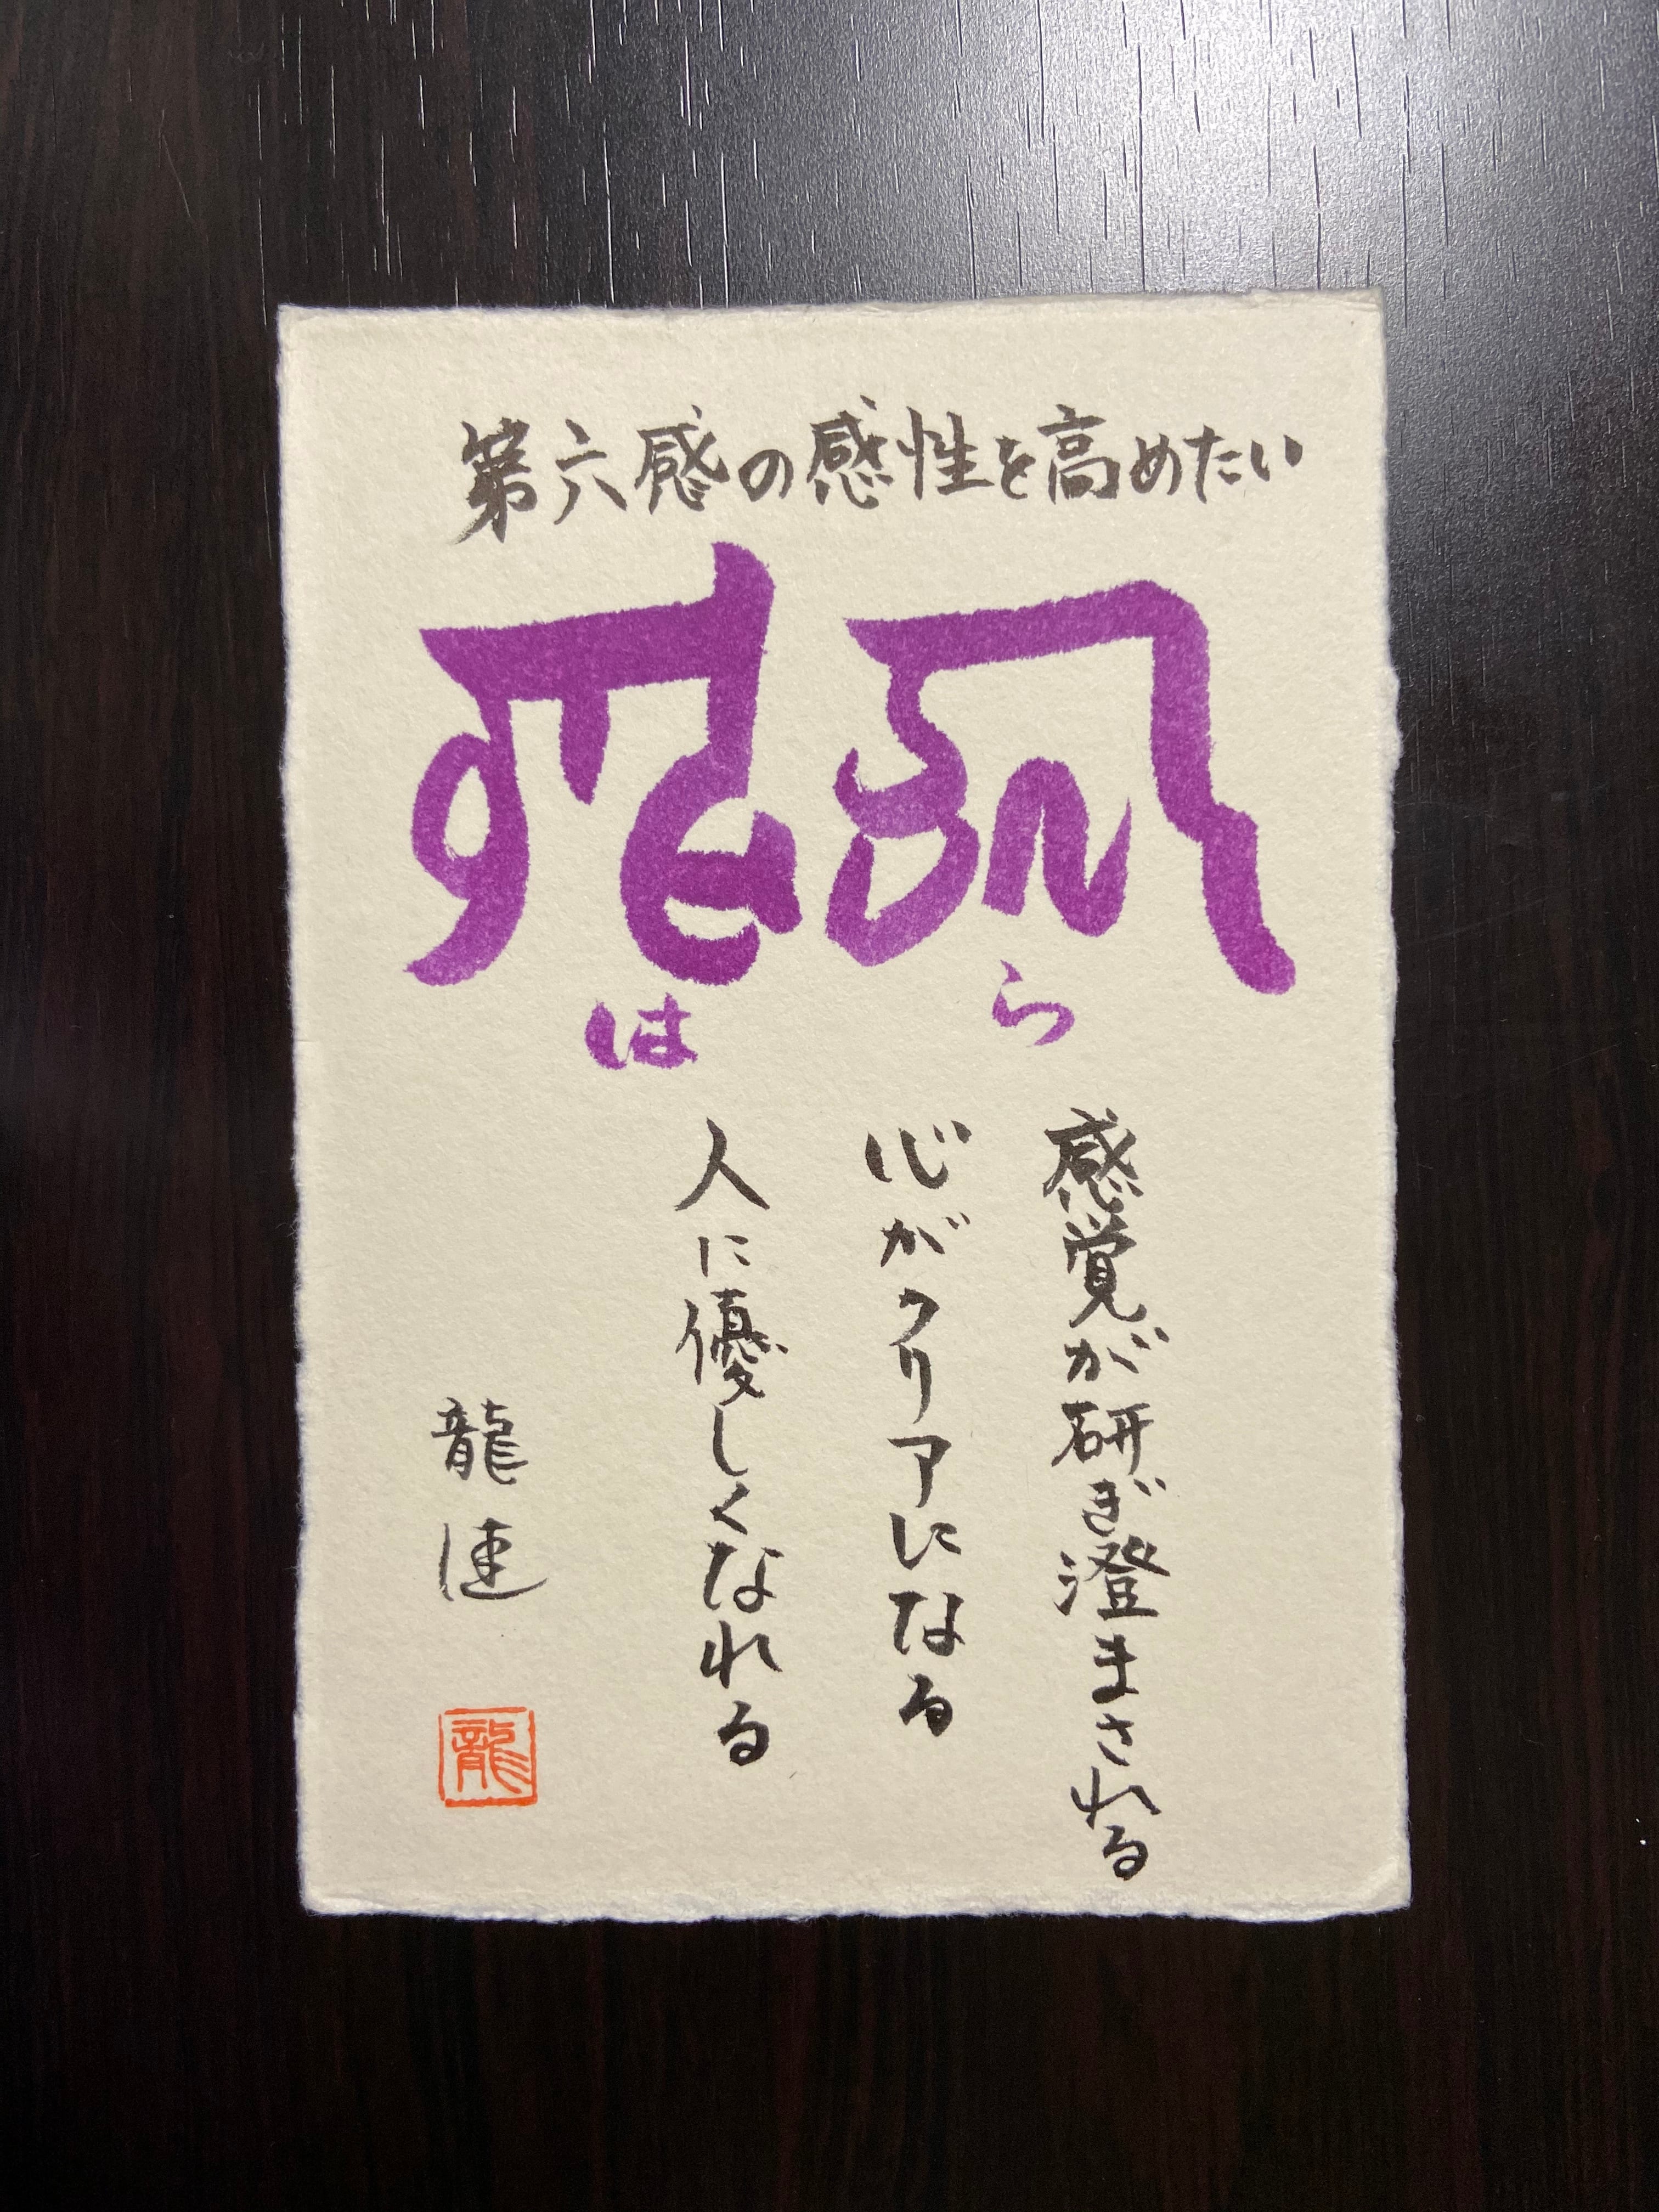 第六感の感性を高めたい
は ら
感覚が研ぎ澄まされる
心がクリアになる
人に優しくなれる
龍連
龍